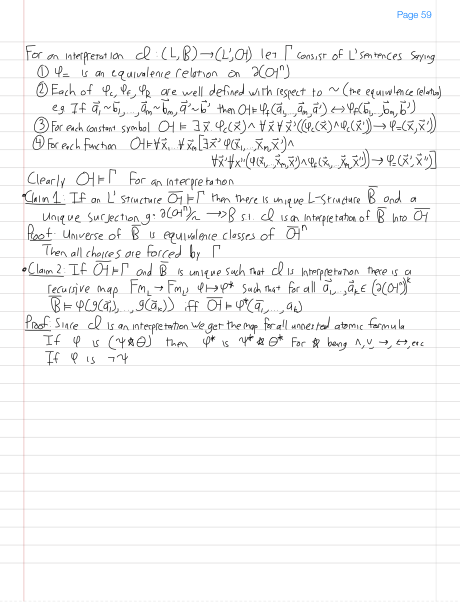 Page 59
For an interpretation 𝒹 : (L, B) → (L', 𝔄) let Γ consist of L' sentences saying
① φ₌ is an equivalence relation on ∂(𝔄ⁿ)
② Each of φ_c, φ_F, φ_R are well defined with respect to ~ (the equivalence relation)
eg If a⃗₁~b⃗₁, ... a⃗ₘ~b⃗ₘ, a⃗'~b⃗' then 𝔄⊨φ_F(a⃗₁, ..., a⃗ₘ, a⃗') ↔ φ_F(b⃗₁, ..., b⃗ₘ, b⃗')
③ For each constant symbol 𝔄 ⊨ ∃x⃗ φ_c(x⃗) ∧ ∀x⃗ ∀x⃗'((φ_c(x⃗)∧φ_c(x⃗')) → φ₌(x⃗,x⃗'))
④ For each function 𝔄⊨∀x⃗₁...∀x⃗ₘ[∃x⃗' φ(x⃗₁, ..., x⃗ₘ,x⃗')∧
∀x⃗'∀x⃗''(φ(x⃗₁, ..., x⃗ₘ,x⃗')∧φ(x⃗₁, ..., x⃗ₘ,x⃗'')) → φ₌(x⃗',x⃗'')]
Clearly 𝔄⊨Γ for an interpretation
•Claim 1: If an L' structure 𝔄̄⊨Γ then there is unique L-structure B̄ and a
unique surjection g: ∂(𝔄ⁿ)/~ ↠ B s.t. 𝒹 is an interpretation of B̄ into 𝔄̄
Proof: Universe of B̄ is equivalence classes of 𝔄̄ⁿ
Then all choices are forced by Γ
•Claim 2: If 𝔄̄⊨Γ and B̄ is unique such that 𝒹 is interpretation there is a
recursive map Fm_L → Fm_L' φ↦φ* such that for all a⃗₁, ..., a⃗ₖ∈(∂(𝔄ⁿ))ᵏ
B̄⊨ φ(g(a⃗₁), ..., g(a⃗ₖ)) iff 𝔄̄⊨φ*(a⃗₁, ..., aₖ)
Proof: Since 𝒹 is an interpretation we get the map for all unnested atomic formula
If φ is (ψ☆θ) then φ* is ψ*☆θ* for ☆ being ∧,∨,→,↔,etc
If φ is ¬ψ